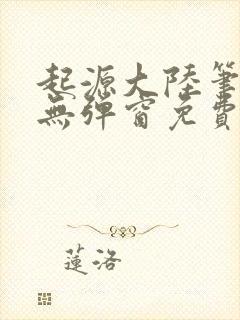 起源大陸筆
無彈窗免費
蓮洛